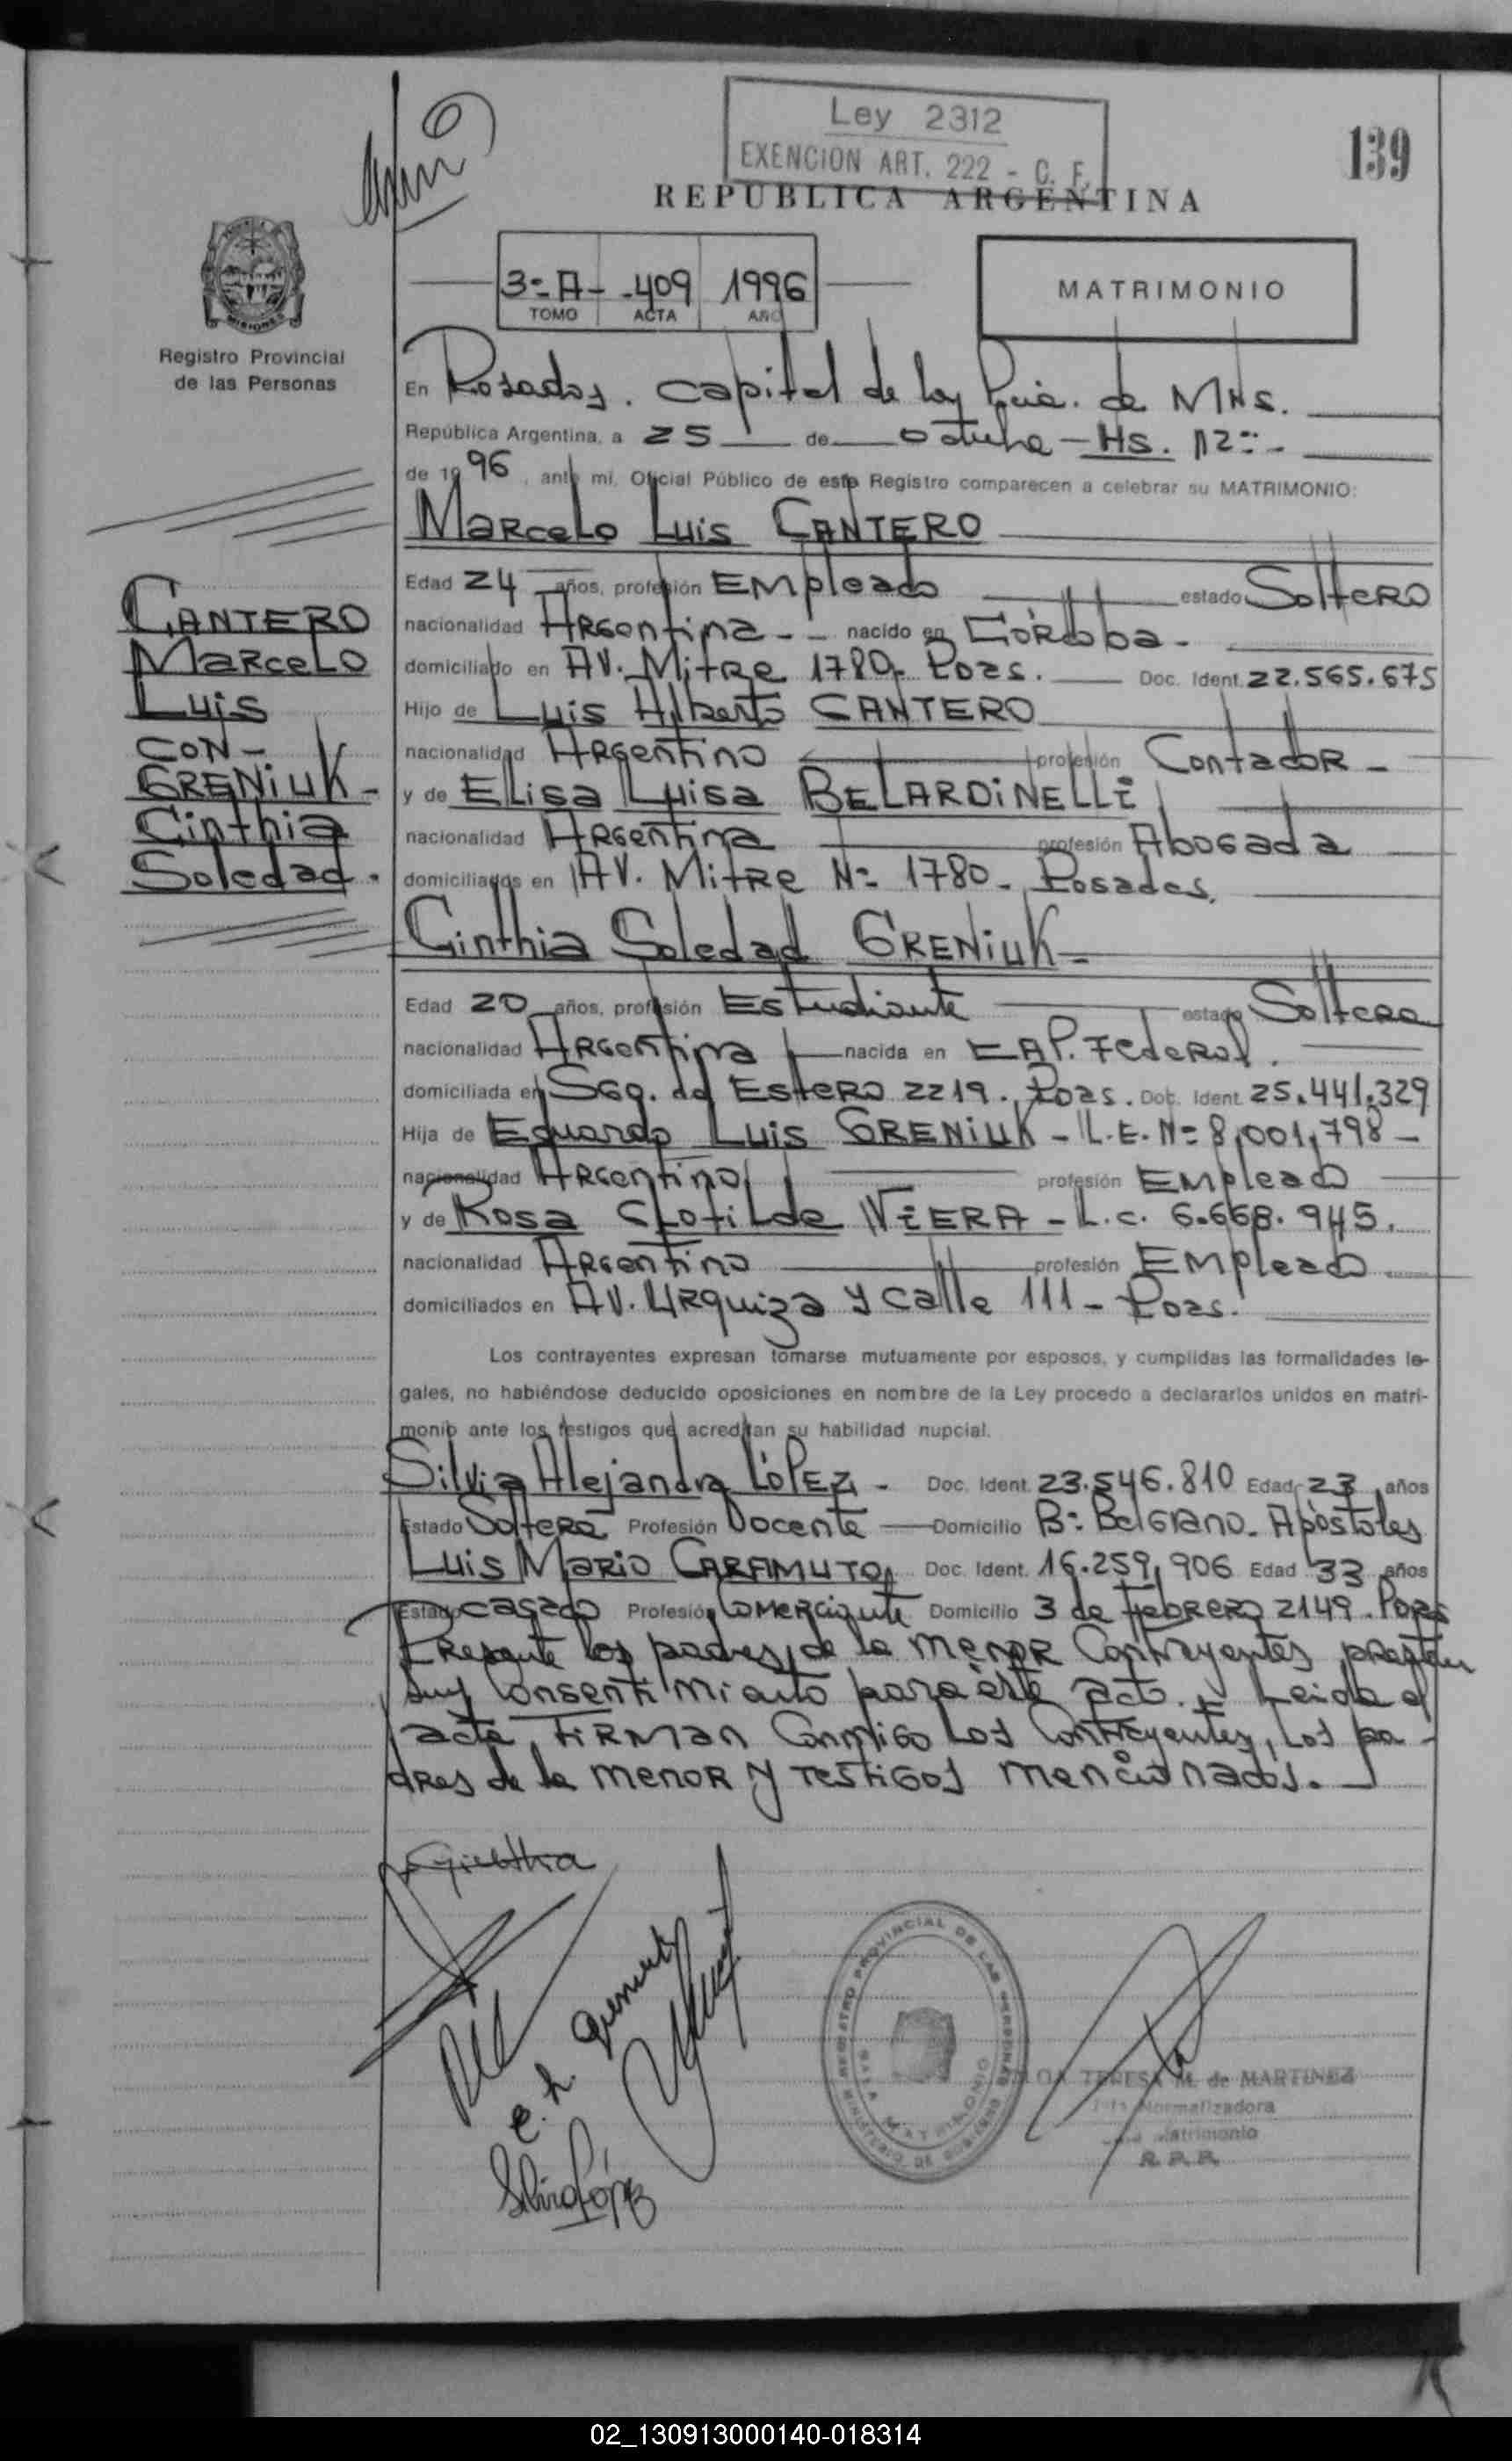 Ley 2312
EXENCION ART. 222 - C. F.
139
REPUBLICA ARGENTINA
3=A- -409 1996
TOMO ACTA AÑO
MATRIMONIO
MISIONES
Registro Provincial
de las Personas
En Posadas. Capital de la Pcia. de MNS.
República Argentina, a 25 de octubre - Hs. 12:-
de 1996, ante mi, Oficial Público de este Registro comparecen a celebrar su MATRIMONIO:
Marcelo Luis CANTERO
Edad 24 años, profesión Empleado estado Soltero
nacionalidad Argentina - - nacido en Córdoba -
domiciliado en AV. Mitre 1780. Pdas. Doc. Ident. 22.565.675
Hijo de Luis Alberto CANTERO
nacionalidad Argentino profesión Contador -
y de Elisa Luisa BELARDINELLI
nacionalidad Argentina profesión Abogada
domiciliados en AV. Mitre Nº 1780 - Posadas.
CANTERO
Marcelo
Luis
CON -
GRENIUK -
Cinthia
Soledad.
Cinthia Soledad GRENIUK -
Edad 20 años, profesión Estudiante estado Soltera
nacionalidad Argentina nacida en CAP. Federal.
domiciliada en Sgo. del Estero 2219. Pdas. Doc. Ident. 25.441.329
Hija de Eduardo Luis GRENIUK - L.E. Nº 8,001,798 -
nacionalidad Argentino profesión Empleado
y de Rosa Clotilde VIERA - L.C. 6.668.945.
nacionalidad Argentino profesión Empleado
domiciliados en AV. Urquiza y calle 111 - Pdas.
Los contrayentes expresan tomarse mutuamente por esposos, y cumplidas las formalidades le-
gales, no habiéndose deducido oposiciones en nombre de la Ley procedo a declararlos unidos en matri-
monio ante los testigos que acreditan su habilidad nupcial.
Silvia Alejandra LÓPEZ - Doc. Ident. 23.546.810 Edad 23 años
Estado Soltera Profesión Docente Domicilio Bº Belgrano - Apóstoles
Luis Mario CARAMUTO Doc. Ident. 16.259,906 Edad 33 años
Estado casado Profesión Comerciante Domicilio 3 de Febrero 2149. Pdas
Presente los padres de la menor Contrayentes prestan
su Consentimiento para éste acto. Leída el
acta, FIRMAN Conmigo Los Contrayentes, Los pa-
dres de la menor y testigos mencionados.
Cinthia
Silvia López
REGISTRO PROVINCIAL DE LAS PERSONAS
MINISTERIO DE GOBIERNO
SALA MATRIMONIO
TERESA M. de MARTINEZ
Normalizadora
Matrimonio
R. P. P.
02_130913000140-018314